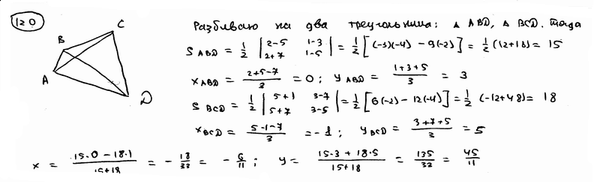 120
A
B
C
D
Разбиваю на два треугольника: △ ABD, △ BCD. Тогда
S ABD = 1/2 | 2-5 1-3 ; 2+7 1-5 | = 1/2 [(-3)(-4) - 9(-2)] = 1/2 (12+18) = 15
x ABD = (2+5-7)/3 = 0; y ABD = (1+3+5)/3 = 3
S BCD = 1/2 | 5+1 3-7 ; 5+7 3-5 | = 1/2 [6(-2) - 12(-4)] = 1/2 (-12+48) = 18
x BCD = (5-1-7)/3 = -1; y BCD = (3+7+5)/3 = 5
x = (15·0 - 18·1)/(15+18) = -18/33 = -6/11; y = (15·3 + 18·5)/(15+18) = 135/33 = 45/11